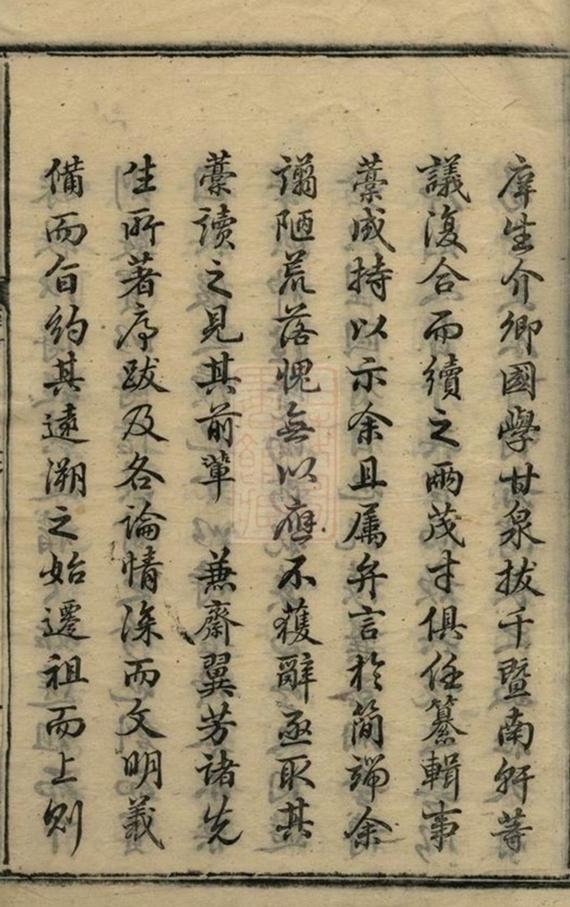 庠生介卿國學甘泉拔千暨南軒等
議復合而續之兩茂才俱任纂輯事
藁成持以示余且属弁言於简端余
譾陋荒落愧無以應不獲辭亟取其
藁讀之見其前輩　兼齋翼芳诸先
生所著序跋及各論情深而文明義
備而旨約其遠溯之始遷祖而上则